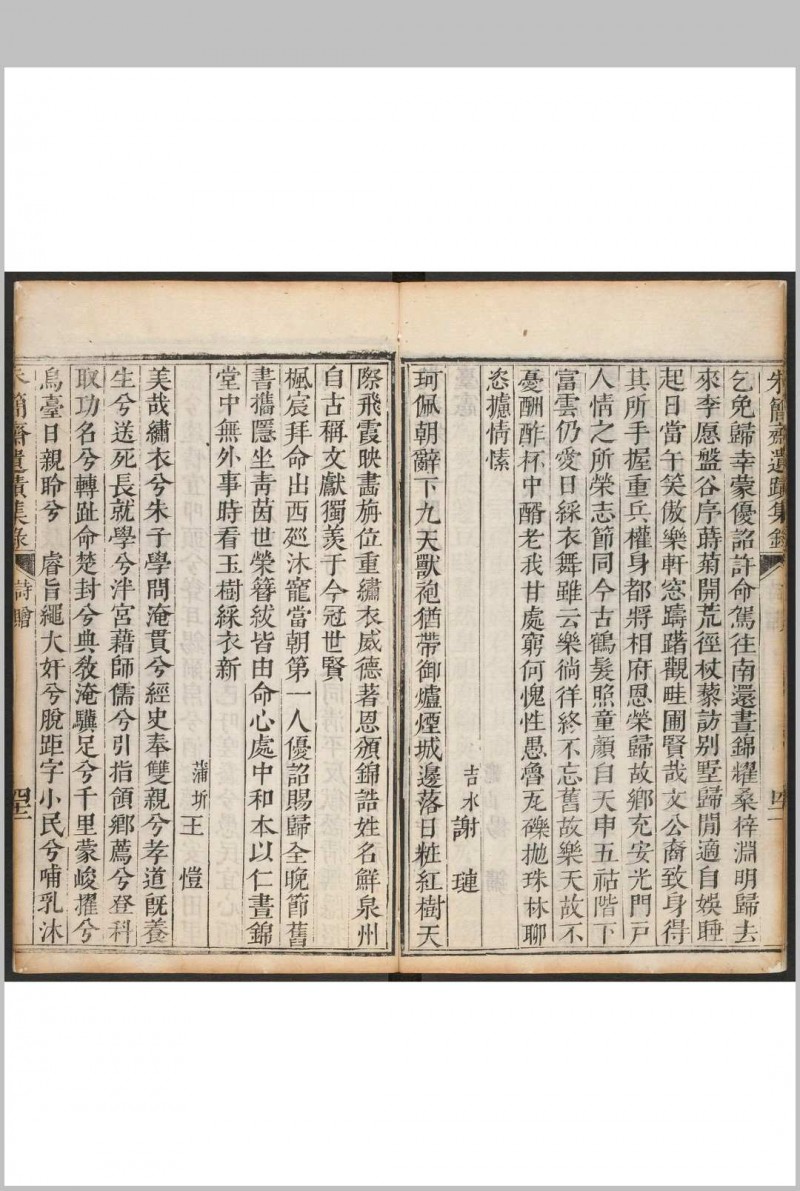 朱簡齋遺蹟集錄
四十一
乞免歸幸蒙優詔許命駕往南還晝錦耀桑梓淵明歸去
來李愿盤谷序蒔菊開荒徑杖藜訪別墅歸閒適自娛睡
起日當午笑傲樂軒窓躊躇觀畦圃賢哉文公裔致身得
其所手握重兵權身都將相府恩榮歸故鄉充安光門戶
人情之所榮志節同今古鶴髮照童顏自天申五祜階下
富雲仍愛日綵衣舞雖云樂徜徉終不忘舊故樂天故不
憂酬酢杯中醑老我甘處窮何愧性愚魯瓦礫拋珠林聊
恣攄情愫
吉水謝 璉
珂佩朝辭下九天獸袍猶帶御爐煙城邊落日粧紅樹天
際飛霞映畵旃位重繡衣威德著恩頒錦誥姓名鮮泉州
自古稱文獻獨羨于今冠世賢
楓宸拜命出西廵沐寵當朝第一人優詔賜歸全晚節舊
書攜隱坐靑茵世榮簪紱皆由命心處中和本以仁晝錦
堂中無外事時看玉樹綵衣新
蒲圻王 愷
美哉繡衣兮朱子學問淹貫兮經史奉雙親兮孝道旣養
生兮送死長就學兮泮宮藉師儒兮引指領鄉薦兮登科
取功名兮轉趾命楚封兮典敎淹驥足兮千里蒙峻擢兮
烏臺日親聆兮 睿旨繩大奸兮脫距字小民兮哺乳沐
朱簡齋遺蹟集錄
詩贈
四十二